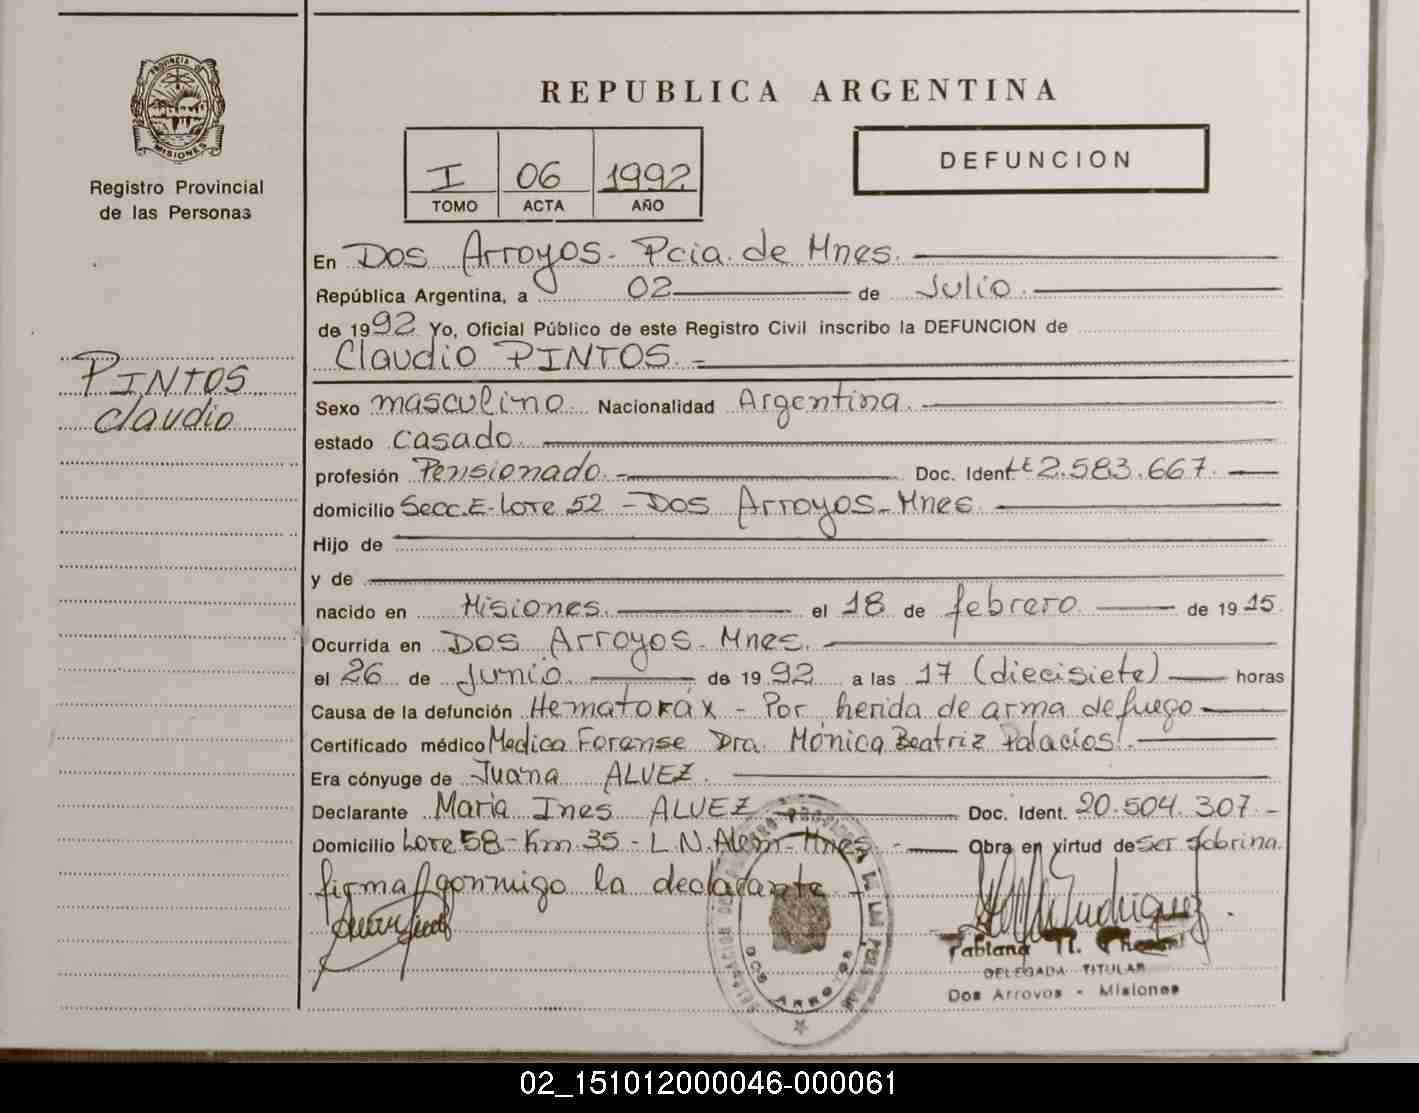 PROVINCIA DE
MISIONES
Registro Provincial
de las Personas
PINTOS
Claudio
REPUBLICA ARGENTINA
I 06 1992
TOMO ACTA AÑO
DEFUNCION
En Dos Arroyos - Pcia. de Mnes.
República Argentina, a 02 de Julio
de 1992 Yo, Oficial Público de este Registro Civil inscribo la DEFUNCION de
Claudio PINTOS.
Sexo masculino. Nacionalidad Argentina.
estado Casado
profesión Pensionado. Doc. Ident. LE 2.583.667.
domicilio Secc. E - Lote 52 - Dos Arroyos - Mnes.
Hijo de
y de
nacido en Misiones. el 18 de febrero de 1915
Ocurrida en Dos Arroyos - Mnes.
el 26 de junio de 1992 a las 17 (diecisiete) horas
Causa de la defunción Hematorax - Por herida de arma de fuego
Certificado médico Medica Forense Dra. Mónica Beatriz Palacios.
Era cónyuge de Juana ALVEZ.
Declarante Maria Ines ALVEZ Doc. Ident. 20.504.307.-
Domicilio Lote 58 - Km. 35 - L.N. Alem - Mnes. - Obra en virtud de ser sobrina.
firma conmigo la declarante -
DOS ARROYOS
Fabiana
DELEGADA TITULAR
Dos Arroyos - Misiones
02_151012000046-000061